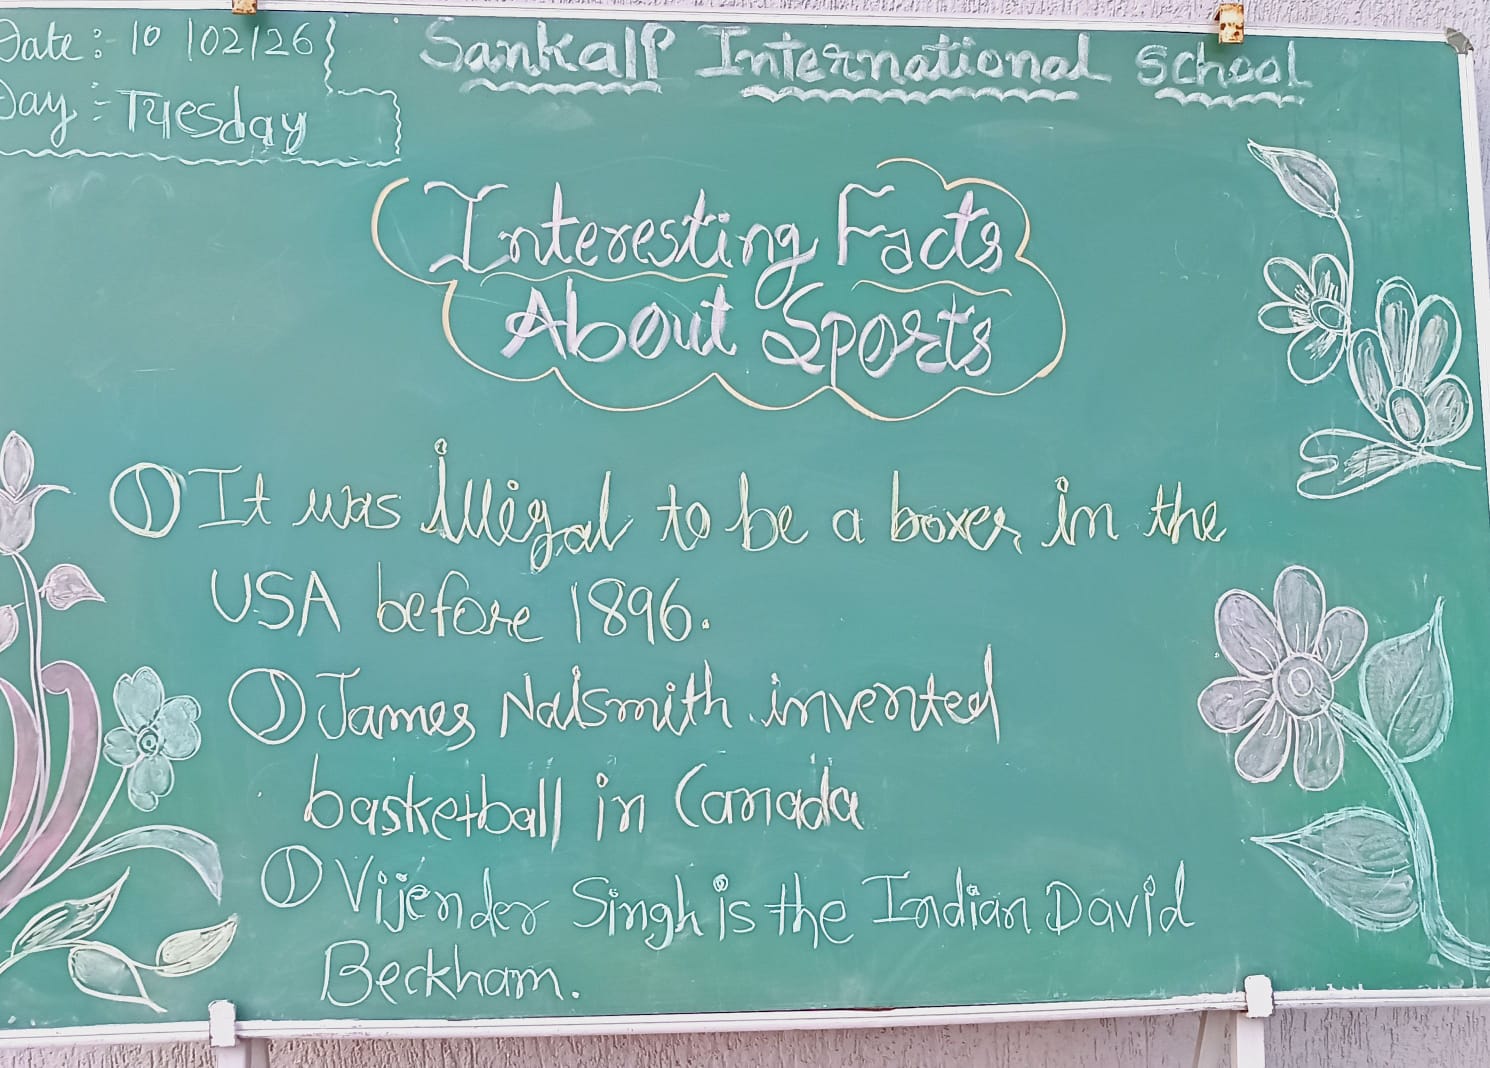 Date:- 10/02/26
Day:- Tuesday
Sankalp International School
Interesting Facts
About Sports
① It was illegal to be a boxer in the
USA before 1896.
① James Naismith invented
basketball in Canada
① Vijender Singh is the Indian David
Beckham.